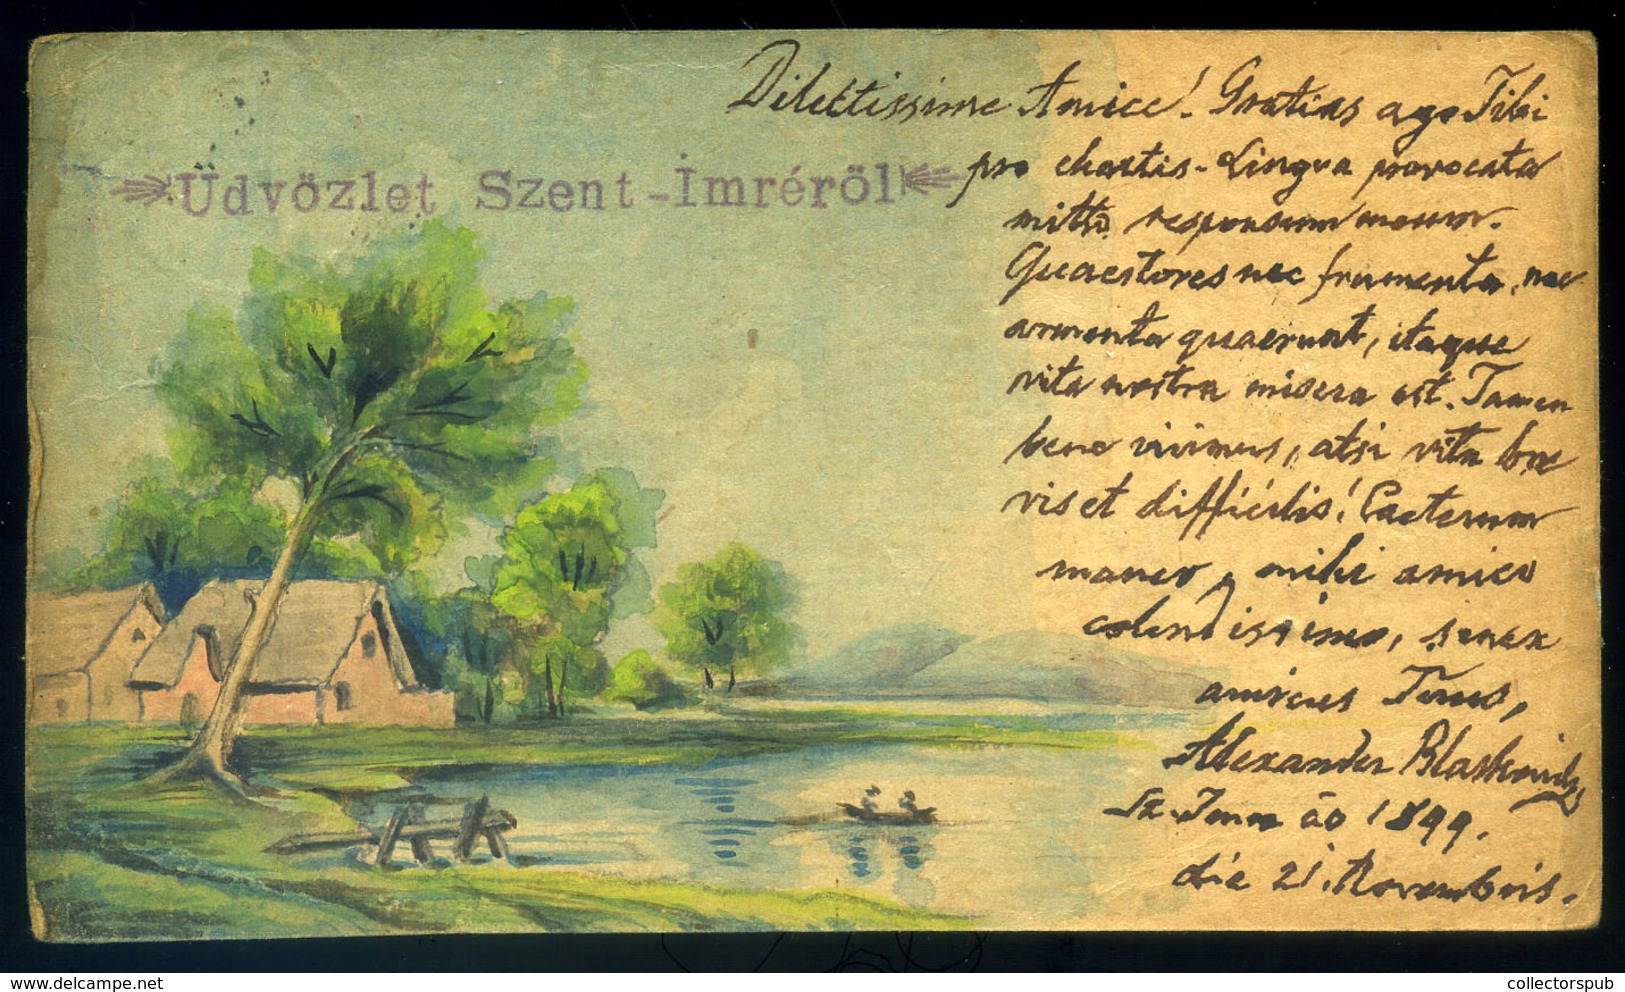 Üdvözlet Szent-Imréröl
Dilectissime Amice! Gratias ago Tibi
pro chartis - Lingva provocata
mitto responsum meum.
Quaestores nec frumenta, nec
armenta quaerunt, itaque
vita nostra misera est. Tamen
bene vivimus, atsi vita bre
vis et difficilis! Caeterum
maneo, mihi amico
colendissimo, senex
amicus Tuus,
Alexander Blaskovich
Sz. Imre ao 1899.
die 21. Novembris.
delcampe.net
collectorspub